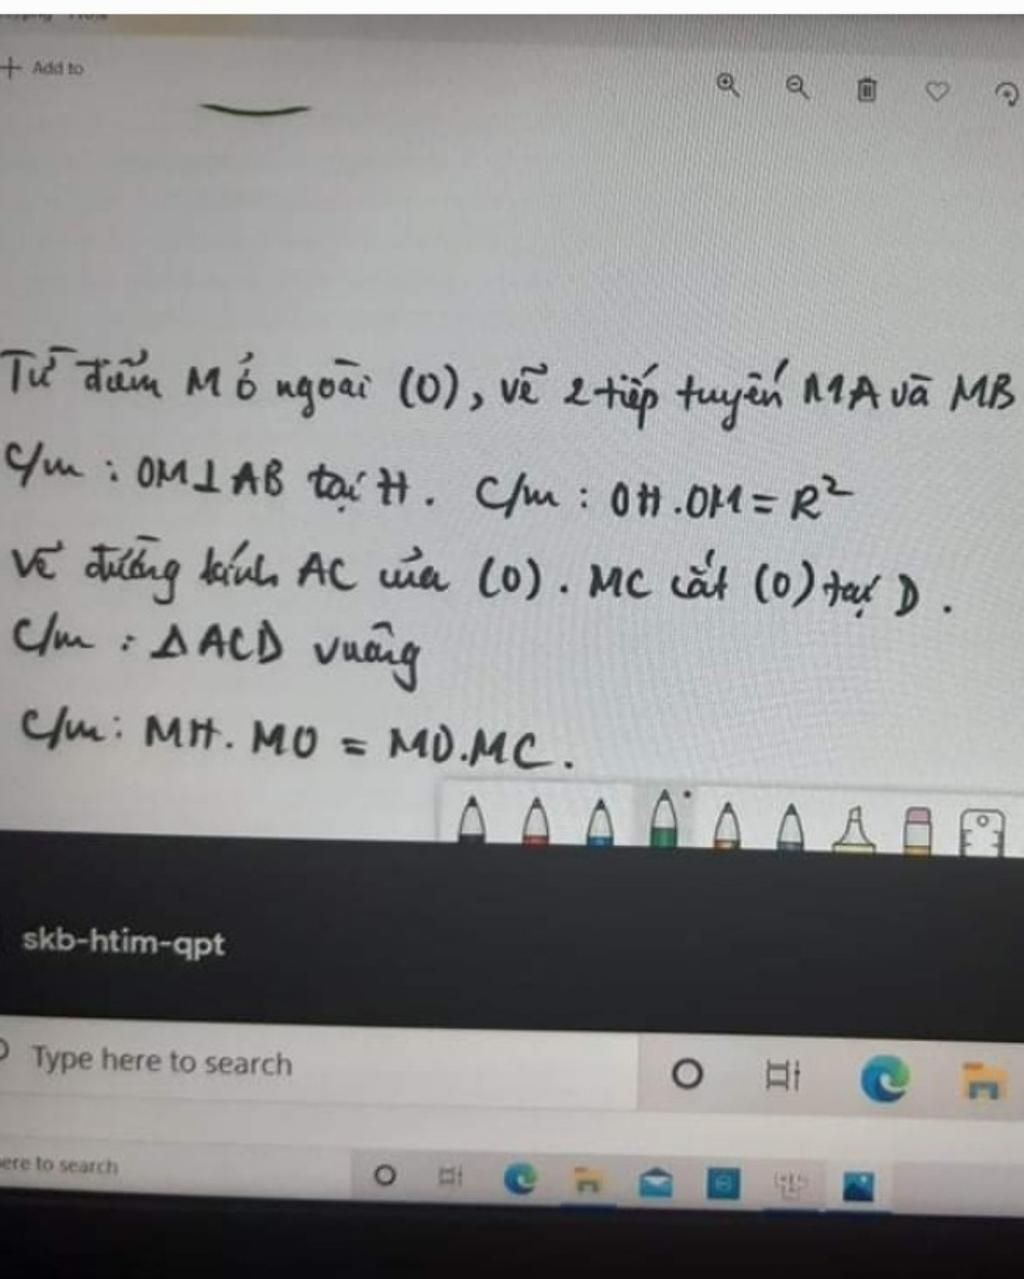 Add to
Từ điểm M ở ngoài (O), vẽ 2 tiếp tuyến MA và MB
C/m : OM⊥AB tại H. C/m : OH.OM = R²
Vẽ đường kính AC của (O). MC cắt (O) tại D.
C/m : ΔACD vuông
C/m : MH. MO = MD.MC.
skb-htim-qpt
Type here to search
ere to search